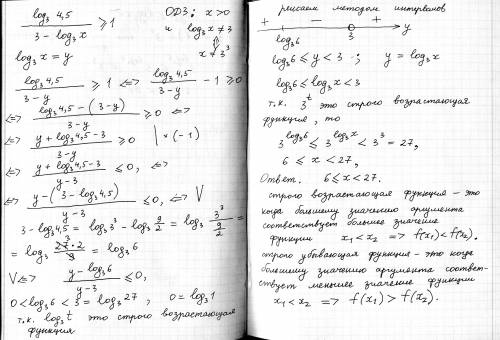 log₃ 4,5 / (3 - log₃ x) ≥ 1    ОДЗ: x > 0
и log₃ x ≠ 3
⇕
x ≠ 3³
log₃ x = y
log₃ 4,5 / (3-y) ≥ 1 ⟺ log₃ 4,5 / (3-y) - 1 ≥ 0
⟺ (log₃ 4,5 - (3-y)) / (3-y) ≥ 0 ⟺
⟺ (y + log₃ 4,5 - 3) / (3-y) ≥ 0 | * (-1)
⟺ (y + log₃ 4,5 - 3) / (y-3) ≤ 0, ⟺
⟺ (y - (3 - log₃ 4,5)) / (y-3) ≤ 0, ⟺ V
3 - log₃ 4,5 = log₃ 3³ - log₃ 9/2 = log₃ 3³ / (9/2) =
= log₃ (27·2 / 9) = log₃ 6
V ⟺ (y - log₃ 6) / (y-3) ≤ 0,
0 < log₃ 6 < 3 = log₃ 27, 0 = log₃ 1
т.к. log₃ t это строго возрастающая
функция
решаем методом интервалов
+ - +
log₃ 6 3 y
log₃ 6 ≤ y < 3 ; y = log₃ x
log₃ 6 ≤ log₃ x < 3
т.к. 3^t это строго возрастающая
функция, то
3^(log₃ 6) ≤ 3^(log₃ x) < 3³ = 27,
6 ≤ x < 27,
Ответ. 6 ≤ x < 27.
строго возрастающая функция - это
когда большему значению аргумента
соответствует большее значение
функции x₁ < x₂ ⇒ f(x₁) < f(x₂).
строго убывающая функция - это когда
большему значению аргумента соответ-
ствует меньшее значение функции
x₁ < x₂ ⇒ f(x₁) > f(x₂).